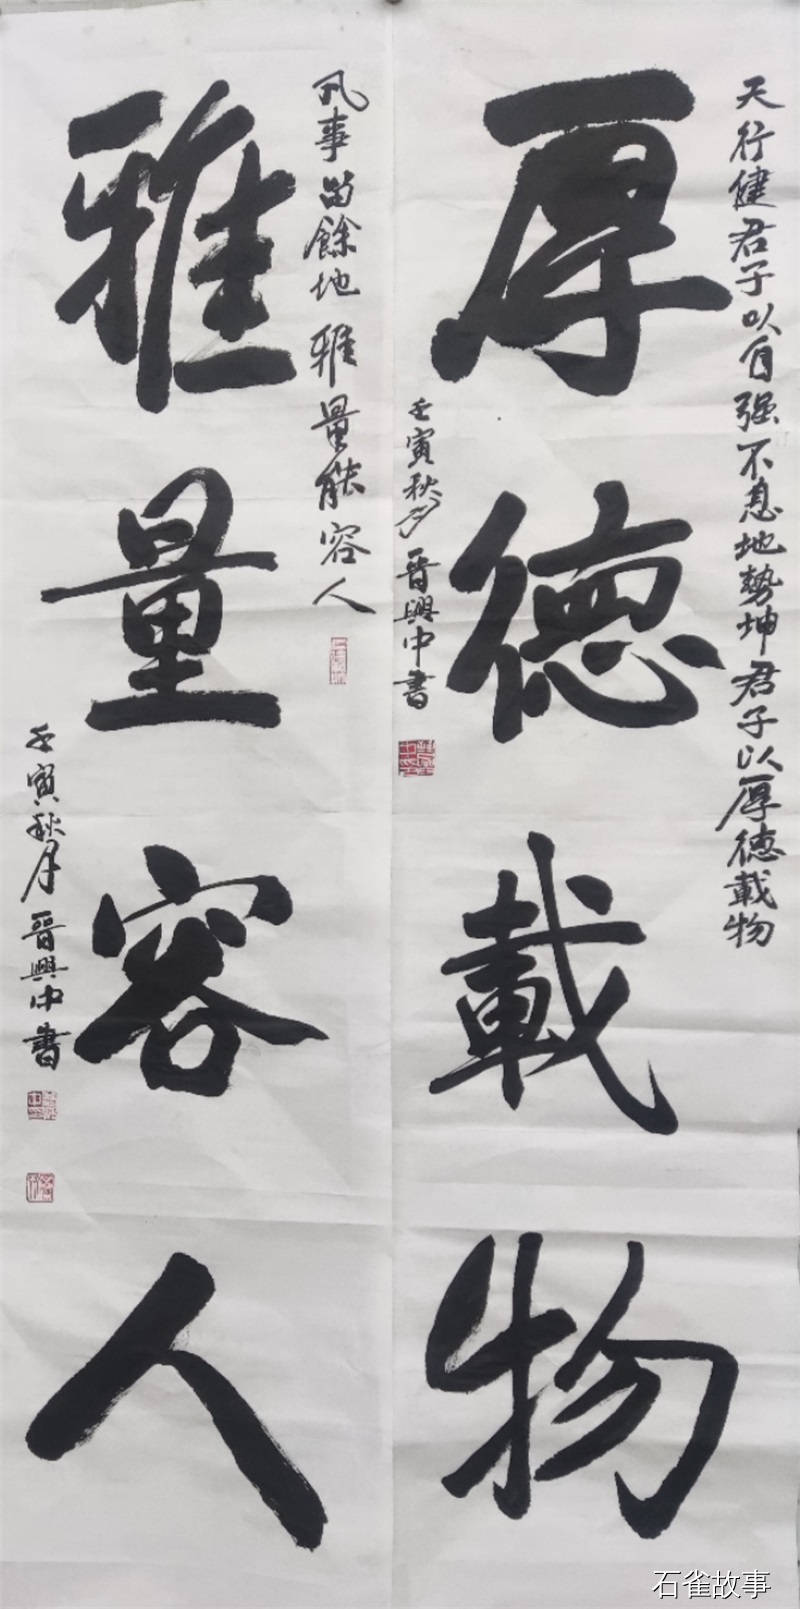 天行健君子以自强不息地勢坤君子以厚德載物
厚德載物
壬寅秋月晋興中書
凡事留餘地雅量能容人
雅量容人
壬寅秋月晋興中書
石雀故事